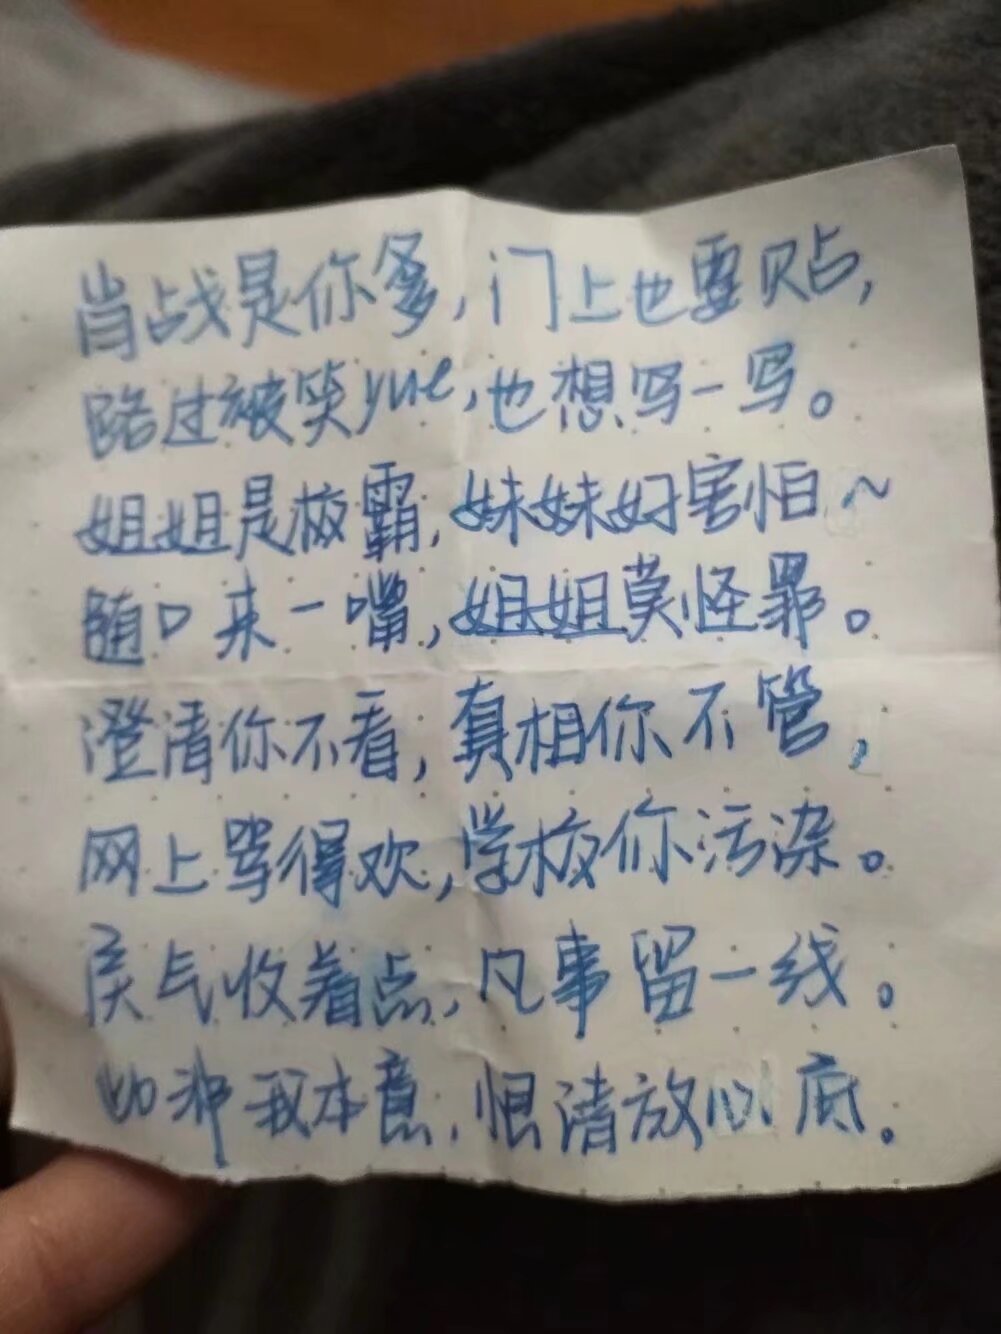 肖战是你爹,门上也要贴,
路过被笑yue,也想写一写。
姐姐是校霸,妹妹好害怕~
随口来一嘴,姐姐莫怪罪。
澄清你不看,真相你不管,
网上骂得欢,学校你污染。
戾气收着点,凡事留一线。
如冲我本意,恨请放心底。